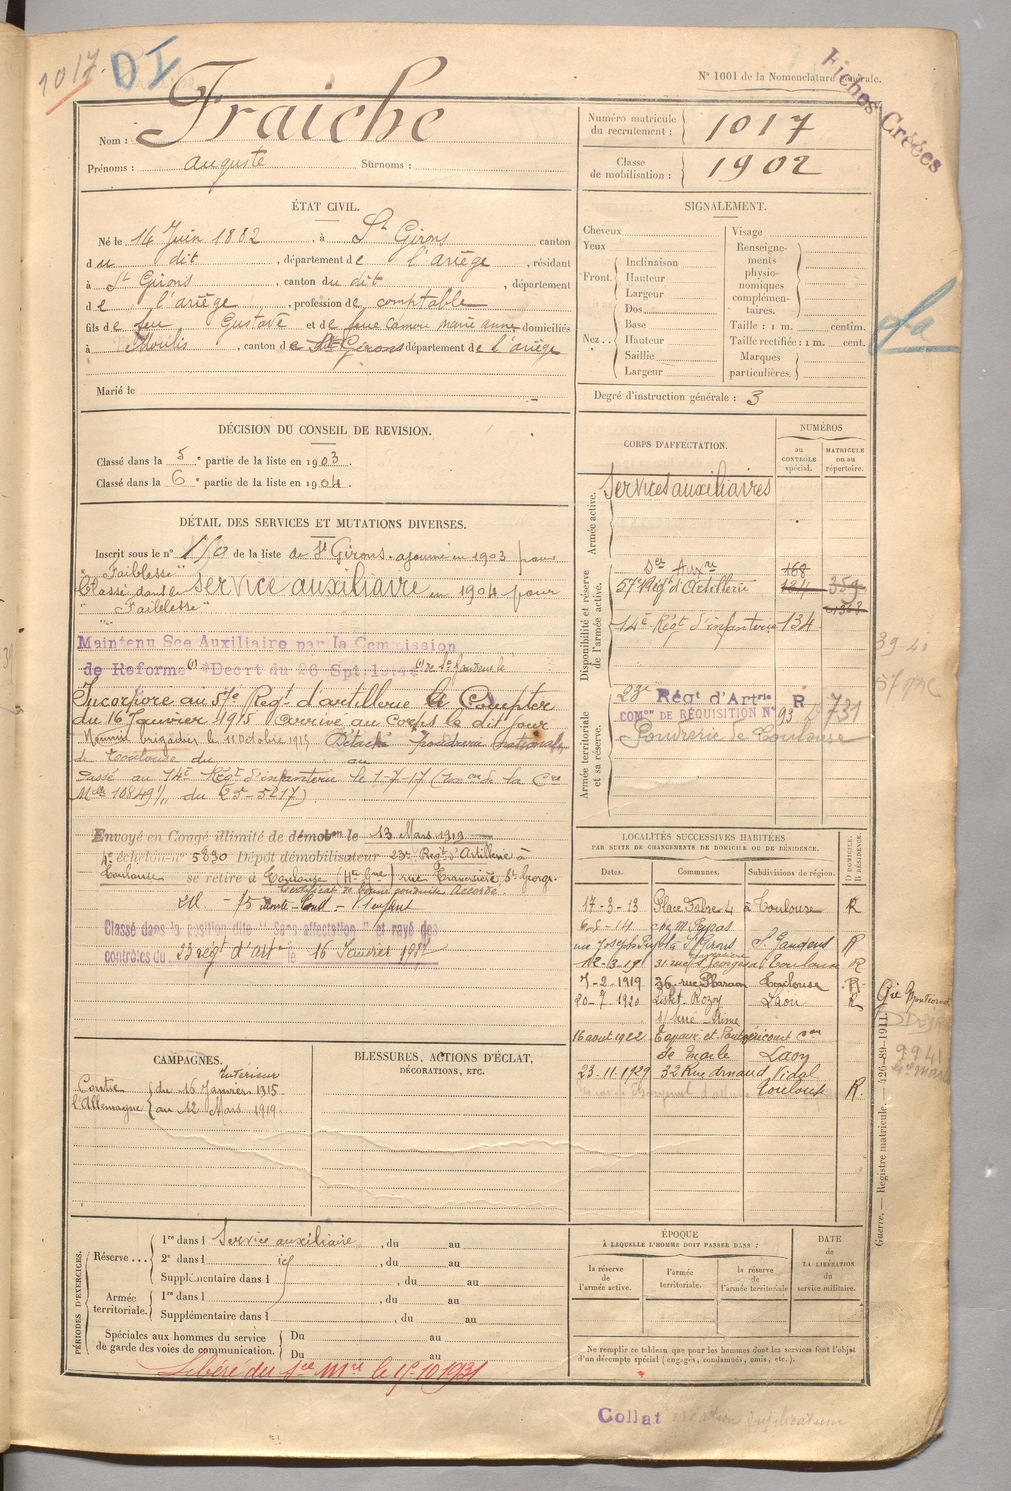 1017. DI
N° 1001 de la Nomenclature générale.
Fiches Créées
Nom : Fraiche
Prénoms : auguste Surnoms :
Numéro matricule du recrutement : 1017
Classe de mobilisation : 1902
ÉTAT CIVIL.
Né le 14 Juin 1882, à St Girons canton
du dit, département de l'ariège, résidant
à St Girons, canton du dit, département
de l'ariège, profession de comptable
fils de feu Gustave et de feue Camou marie anne domiciliés
à Moulis, canton de St Girons département de l'ariège
Marié le
SIGNALEMENT.
Cheveux
Yeux
Front. Inclinaison
Hauteur
Largeur
Nez.. Dos
Base
Hauteur
Saillie
Largeur
Visage
Renseignements physionomiques complémentaires.
Taille : 1 m. centim.
Taille rectifiée : 1 m. cent.
Marques particulières.
Degré d'instruction générale : 3
DÉCISION DU CONSEIL DE REVISION.
Classé dans la 5e partie de la liste en 1903.
Classé dans la 6e partie de la liste en 1904.
DÉTAIL DES SERVICES ET MUTATIONS DIVERSES.
Inscrit sous le n° 150 de la liste de St Girons. ajourné en 1903 pour
"Faiblesse"
Classé dans le service auxiliaire en 1904 pour
"Faiblesse"
Maintenu Sce Auxiliaire par la Commission
de Reforme (1) Decrt du 26 Spt. 1914 (1) de St Gaudens le
Incorporé au 57e Regt d'artillerie à Compter
du 16 Janvier 1915 Arrivé au corps le dit jour
Nommé brigadier le 11 Octobre 1915 Détaché poudrerie nationale
de Toulouse du au
Passé au 14e Régt d'infanterie le 1-7-17 (on de la Cre
Mlle 10849 1/11 du 25-5-17)
Envoyé en Congé illimité de démobon le 13 Mars 1919
4e échelon n° 5830 Dépôt démobilisateur 23e Regt d'Artillerie à
Toulouse se retire à Toulouse (Hte Gne) rue Traversière St Georges.
Certificat de bonne conduite Accordé.
Classé dans la position dite "Sans affectation" et rayé des
contrôles du 23 régt d'art le 16 Janvier 1927
CORPS D'AFFECTATION.
NUMÉROS
au CONTRÔLE spécial.
MATRICULE ou au répertoire.
Armée active.
Services auxiliaires
Disponibilité et réserve de l'armée active.
Ser Auxre 168
57e Régt d'Artillerie 359
1368
14e Régt d'infanterie 134
Armée territoriale et sa réserve.
23e Régt d'Artrie R 731
COMon DE RÉQUISITION N° 93
Poudrerie de Toulouse
39-41
LOCALITÉS SUCCESSIVES HABITÉES
PAR SUITE DE CHANGEMENTS DE DOMICILE OU DE RÉSIDENCE.
Dates. Communes. Subdivisions de région. D. DOMICILE. R. RÉSIDENCE.
17-3-13 Place Fabre 4 à Toulouse R
6-5-14 chez M. Peyras
rue Joseph Pujol à St Girons St Gaudens R
12-3-19 31 rue traversière St Georges à Toulouse R
7-2-1919 36 rue Pharaon Toulouse R
20-7-1920 Lislet-Rozoy Laon R
s/ Serre - Aisne
16 août 1922 Tavaux et Pontséricourt con
de Marle Laon
23-11-1929 32 Rue Arnaud Vidal
Toulouse R.
Gie Montcornet
9941
Guerre. — Registre matricule. — 426-89-1911.
CAMPAGNES.
Intérieur
Contre l'Allemagne du 16 Janvier 1915
au 12 Mars 1919.
BLESSURES, ACTIONS D'ÉCLAT,
DÉCORATIONS, ETC.
PÉRIODES D'EXERCICES.
Réserve... 1re dans l Service auxiliaire, du au
2e dans l id, du au
Supplémentaire dans l, du au
Armée territoriale. 1re dans l, du au
Supplémentaire dans l, du au
Spéciales aux hommes du service de garde des voies de communication. Du au
Du au
Libéré du sce mre le 15-10-1931
ÉPOQUE
À LAQUELLE L'HOMME DOIT PASSER DANS :
la réserve de l'armée active.
l'armée territoriale.
la réserve de l'armée territoriale
DATE
de LA LIBÉRATION du service militaire.
Ne remplir ce tableau que pour les hommes dont les services font l'objet
d'un décompte spécial (engagés, condamnés, omis, etc.).
Collat